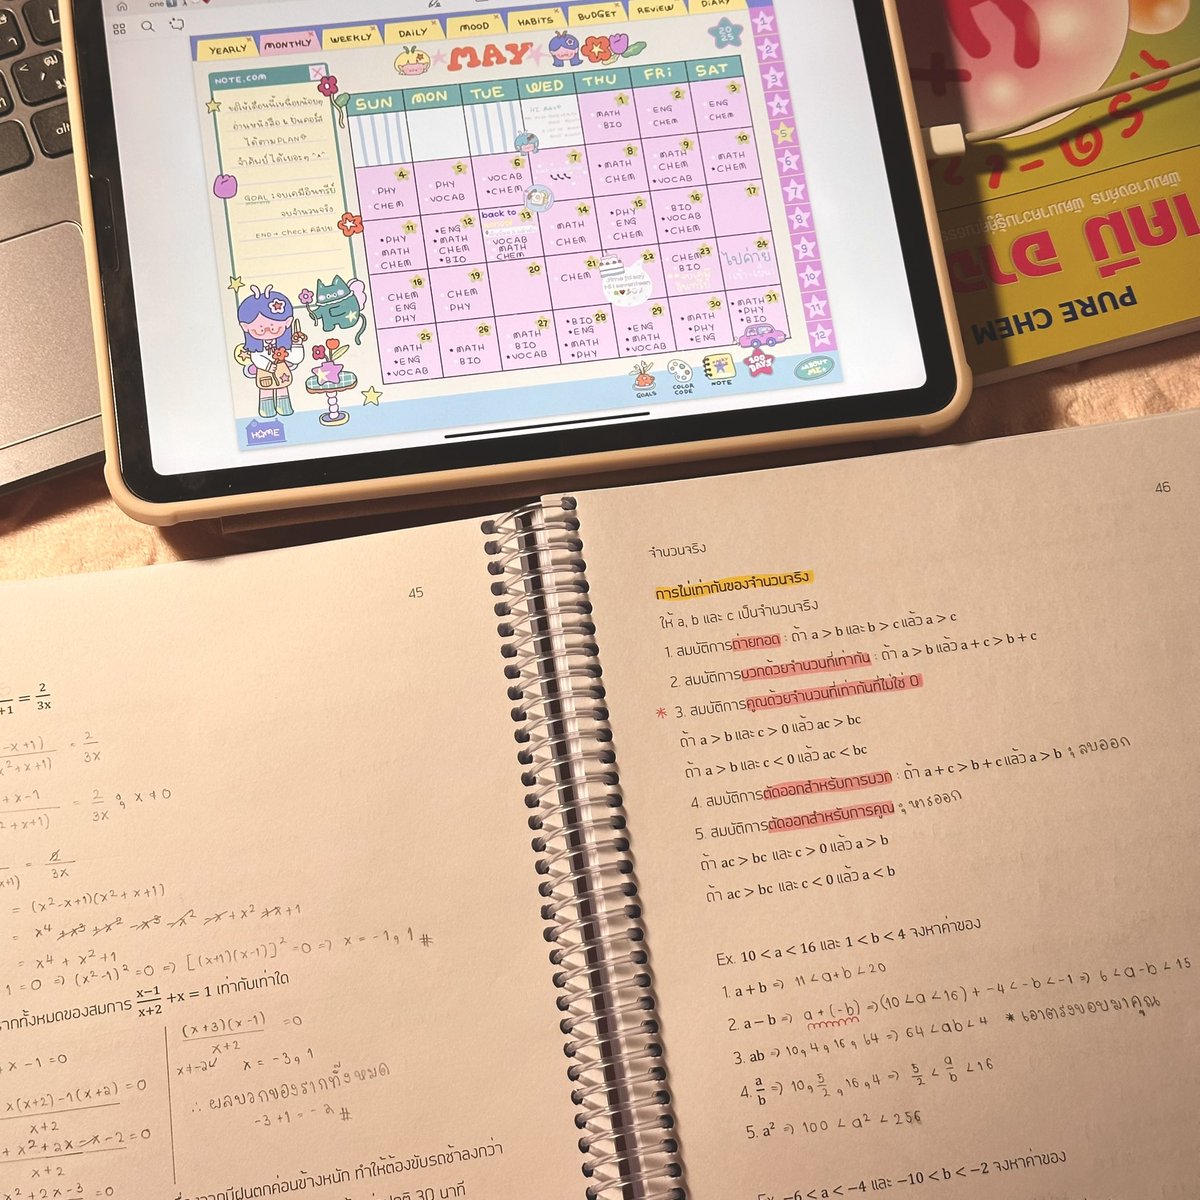 one
YEARLY
MONTHLY
WEEKLY
DAILY
MOOD
HABITS
BUDGET
REVIEW
DIARY
NOTE.COM
MAY
2025
ขอให้เดือนนี้เหนื่อยน้อยๆ
อ่านหนังสือ & ปั่นคอร์ส
ได้ตาม PLAN
จำศัพท์ได้เยอะๆ ^_^
GOAL : จบเคมีอินทรีย์
จบจำนวนจริง
END → Check คลิป
SUN MON TUE WED THU FRI SAT
1 MATH BIO
2 ENG CHEM
3 ENG CHEM
4 PHY CHEM
5 PHY VOCAB
6 VOCAB CHEM
7
8 MATH CHEM
9 MATH CHEM VOCAB
10 MATH CHEM
11 PHY MATH CHEM
12 ENG MATH CHEM BIO
13 back to VOCAB MATH CHEM
14 MATH CHEM
15 PHY ENG CHEM
16 BIO VOCAB CHEM
17
18 CHEM ENG PHY
19 CHEM PHY
20
21 CHEM
22
23 CHEM BIO
24 ไปค่าย
25 MATH ENG VOCAB
26 MATH BIO
27 MATH BIO VOCAB
28 BIO ENG MATH PHY
29 ENG MATH VOCAB
30 MATH PHY ENG
31 MATH PHY BIO
1
2
3
4
5
6
7
8
9
10
11
12
HOME
GOALS
COLOR CODE
NOTE
100 DAYS
ABOUT ME
PURE CHEM
45
+1 = 2/3x
-x+1) / x²+x+1) = 2/3x
+x-1 / ²+x+1) = 2/3x , x≠0
x+1) = 2/3x
= (x²-x+1)(x²+x+1)
= x⁴+x³+x²-x³-x²-x+x²+x+1
= x⁴+x²+1
1=0 ⇒ (x²-1)²=0 ⇒ [(x+1)(x-1)]²=0 ⇒ x=-1,1 #
รากทั้งหมดของสมการ x-1/x+2 +x = 1 เท่ากับเท่าใด
x-1=0
x(x+2)-1(x+2)=0
x+2
+x²+2x-x-2=0
x+2
x²+2x-3=0
(x+3)(x-1)/x+2 =0
x≠-2 x=-3,1
∴ ผลบวกของรากทั้งหมด
-3+1=-2 #
มีฝนตกค่อนข้างหนัก ทำให้ต้องขับรถช้าลงกว่า
30 นาที
46
จำนวนจริง
การไม่เท่ากันของจำนวนจริง
ให้ a, b และ c เป็นจำนวนจริง
1. สมบัติการถ่ายทอด : ถ้า a > b และ b > c แล้ว a > c
2. สมบัติการบวกด้วยจำนวนที่เท่ากัน : ถ้า a > b แล้ว a + c > b + c
* 3. สมบัติการคูณด้วยจำนวนที่เท่ากันที่ไม่ใช่ 0
ถ้า a > b และ c > 0 แล้ว ac > bc
ถ้า a > b และ c < 0 แล้ว ac < bc
4. สมบัติการตัดออกสำหรับการบวก : ถ้า a + c > b + c แล้ว a > b ; ลบออก
5. สมบัติการตัดออกสำหรับการคูณ ; หารออก
ถ้า ac > bc และ c > 0 แล้ว a > b
ถ้า ac > bc และ c < 0 แล้ว a < b
Ex. 10 < a < 16 และ 1 < b < 4 จงหาค่าของ
1. a + b ⇒ 11 < a+b < 20
2. a − b ⇒ a + (-b) ⇒ (10 < a < 16) + -4 < -b < -1 ⇒ 6 < a-b < 15
3. ab ⇒ 10, 4, 16, 64 ⇒ 64 < ab < 4 * เอาตรงขอบมาคูณ
4. a/b ⇒ 10, 5/2, 16, 4 ⇒ 5/2 < a/b < 16
5. a² ⇒ 100 < a² < 256
Ex. −6 < a < −4 และ −10 < b < −2 จงหาค่าของ